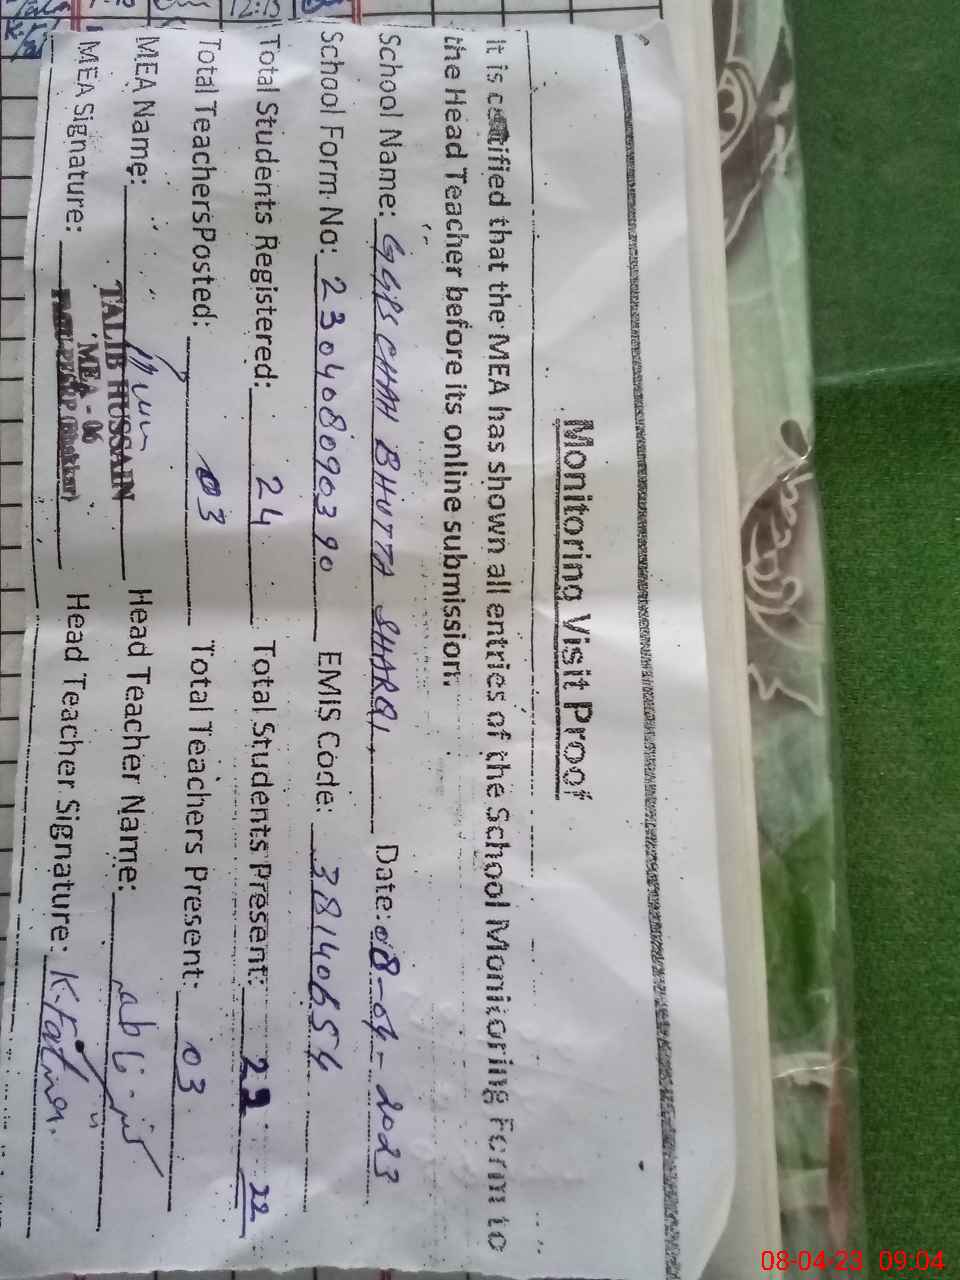 Monitoring Visit Proof
It is certified that the MEA has shown all entries of the School Monitoring Form to
the Head Teacher before its online submission.
School Name: GGPS CHAH BHUTTA SHARQI Date: 08-04-2023
School Form No: 230408090390 EMIS Code: 38140654
Total Students Registered: 24 Total Students Present: 22
Total TeachersPosted: 03 Total Teachers Present: 03
MEA Name: TALIB HUSSAIN Head Teacher Name:
MEA - 06
MEA Signature: Head Teacher Signature: K.Fatima.
12:15
08-04-23 09:04